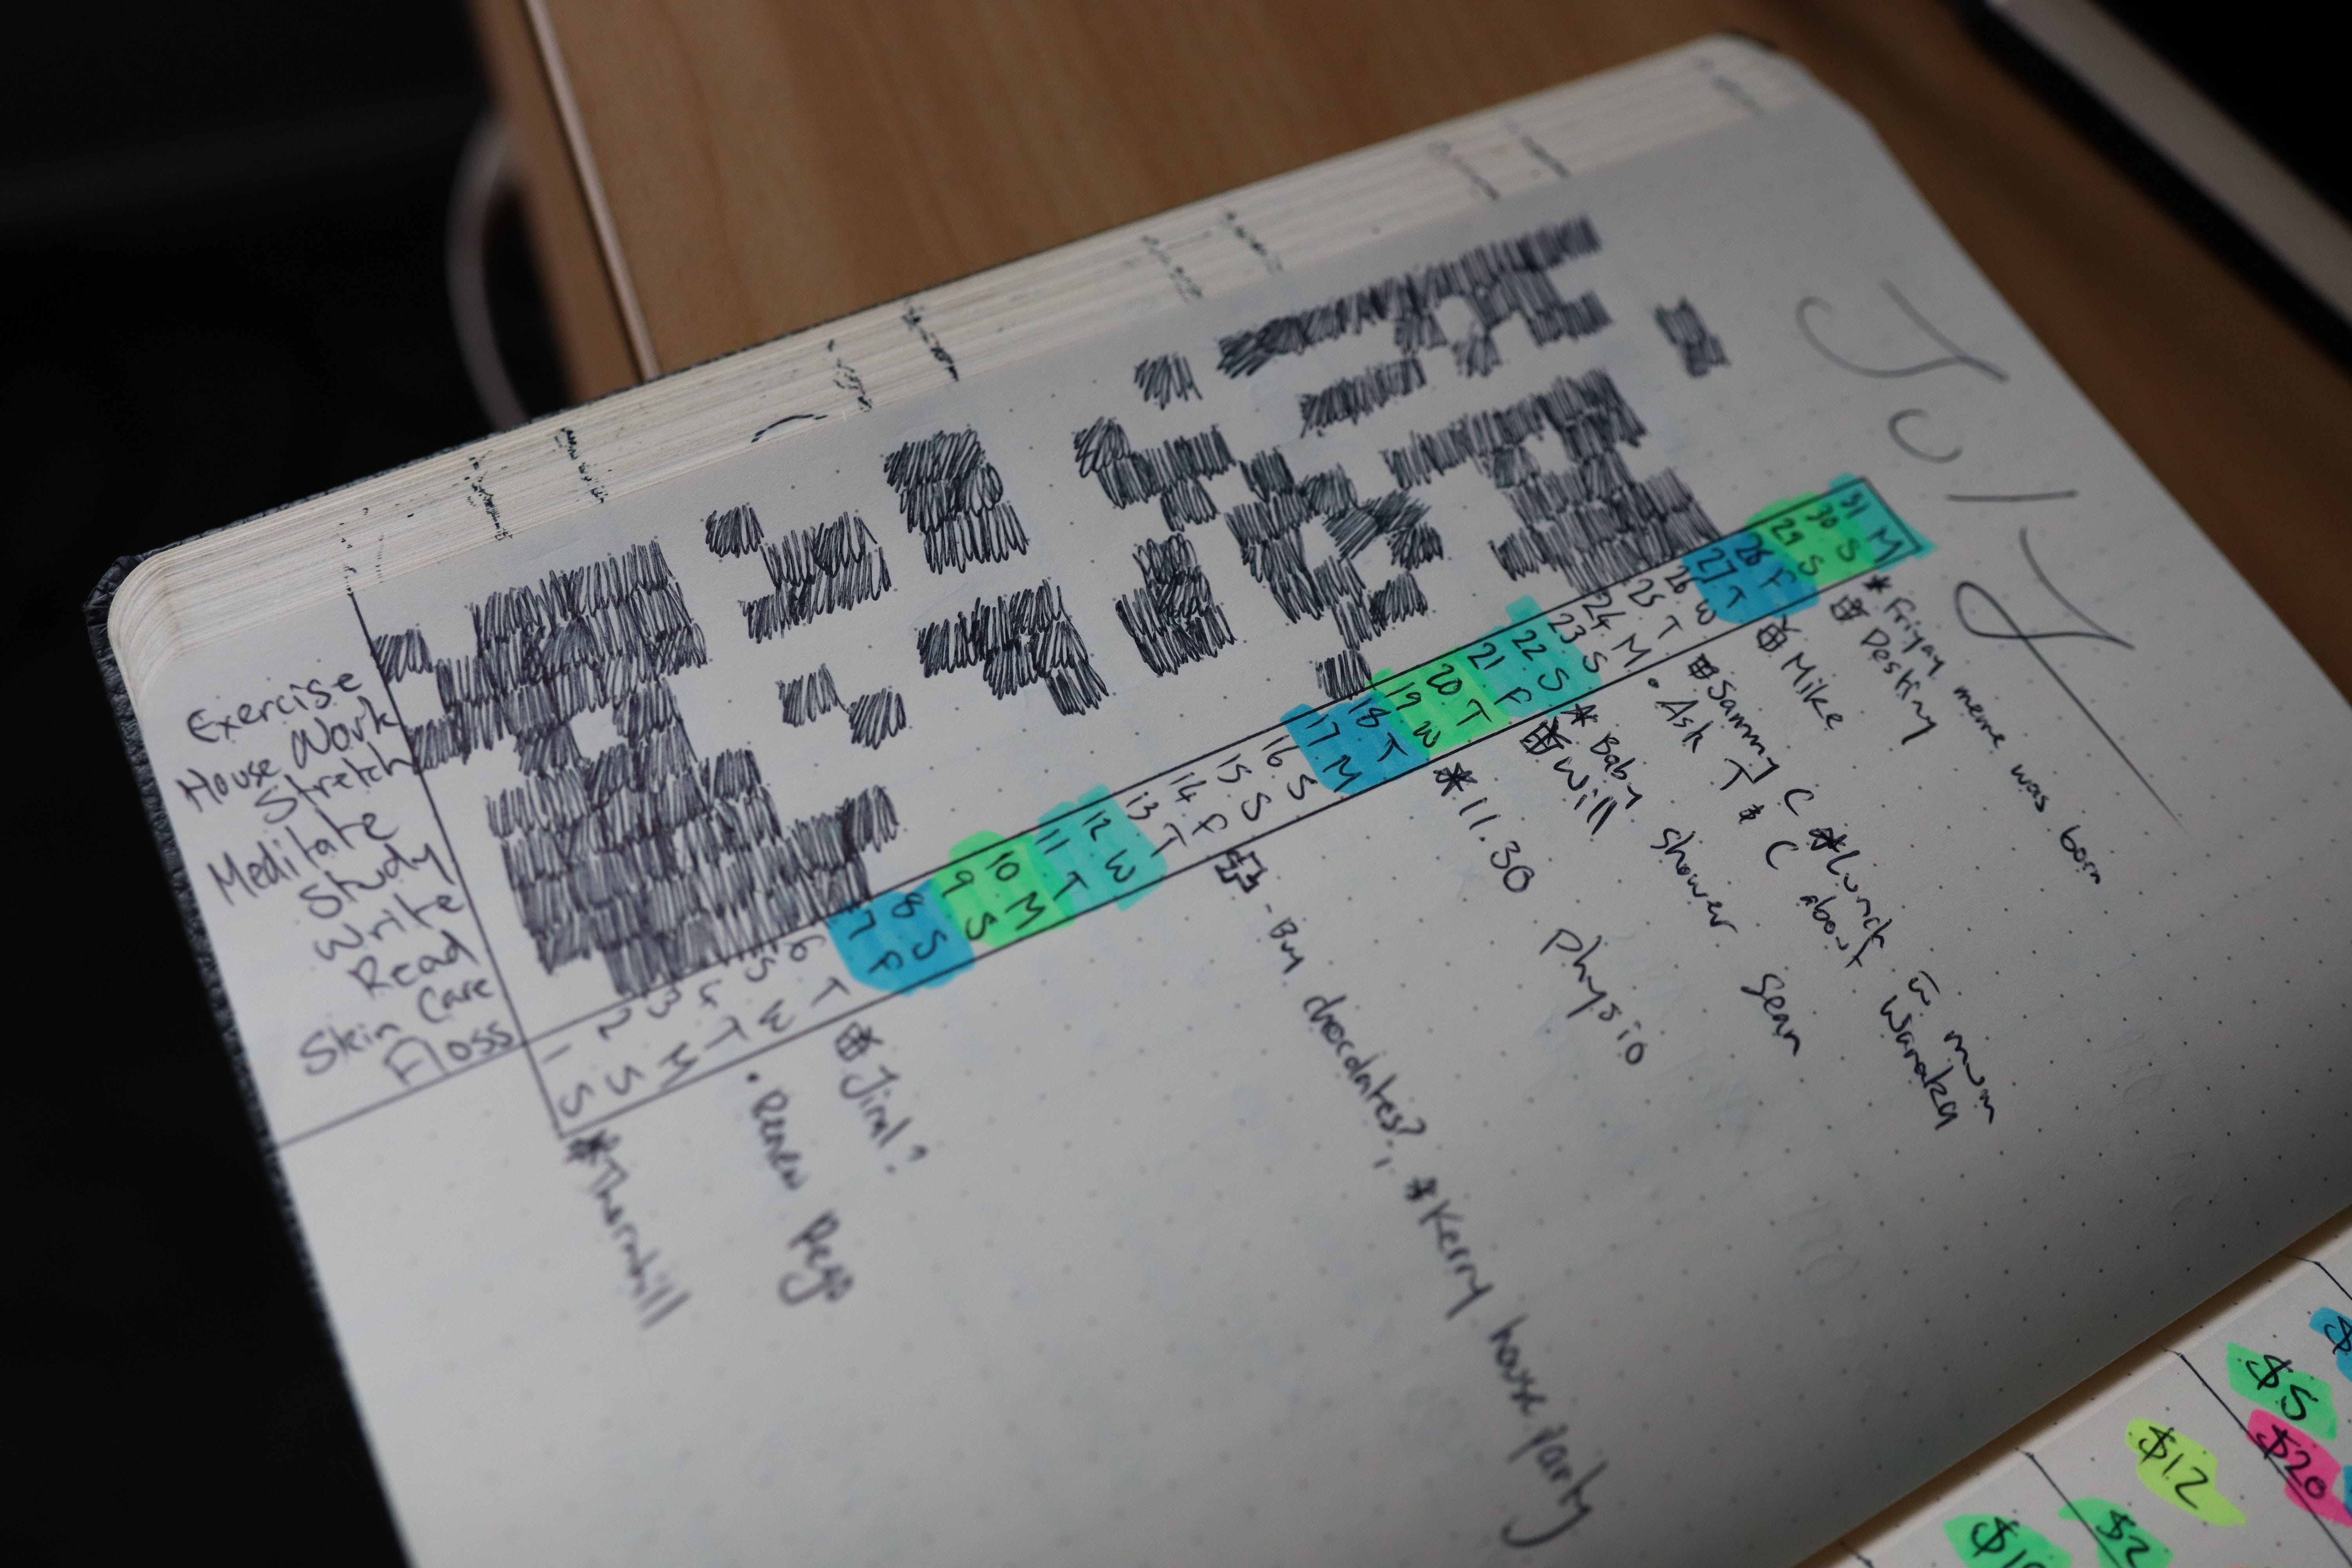 July
Exercise
House Work
Stretch
Meditate
Study
Write
Read
Skin Care
Floss
1 S
2 S
3 M
4 T
5 W
6 T
7 F
8 S
9 S
10 M
11 T
12 W
13 T
14 F
15 S
16 S
17 M
18 T
19 W
20 T
21 F
22 S
23 S
24 M
25 T
26 W
27 T
28 F
29 S
30 S
31 M
* Thornhill
• Renew Rego
Jira?
- Buy chocolates?, * Kerry house party
* 11.30 Physio
Will
* Baby shower Sean
• Ask T & C about Wanaka
Sammy C * Lunch w mum
Mike
Destiny
* Friyay meme was born
$5
$20
$12
$2